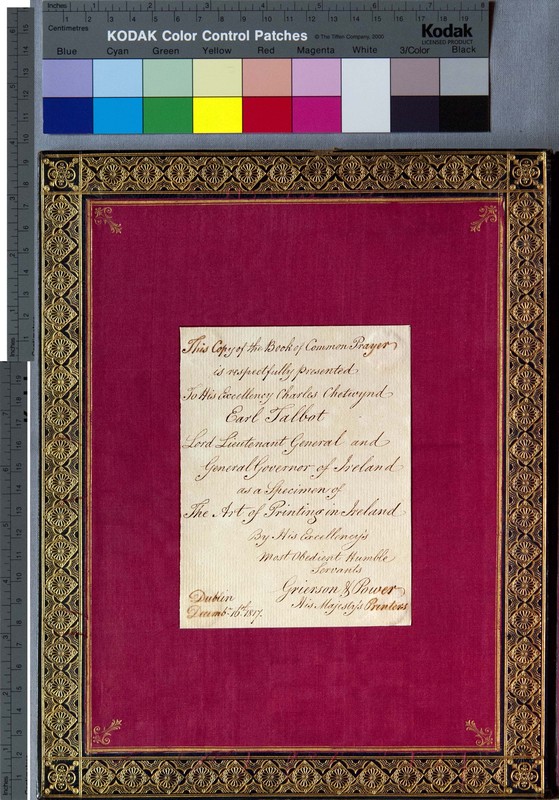 Inches 1 2 3 4 5 6 7 8
Centimetres 1 2 3 4 5 6 7 8 9 10 11 12 13 14 15 16 17 18 19
KODAK Color Control Patches © The Tiffen Company, 2000
Kodak
LICENSED PRODUCT
Blue Cyan Green Yellow Red Magenta White 3/Color Black
This Copy of the Book of Common Prayer
is respectfully presented
To His Excellency Charles Chetwynd
Earl Talbot
Lord Lieutenant General and
General Governor of Ireland
as a Specimen of
The Art of Printing in Ireland
By His Excellency's
Most Obedient Humble
Servants
Grierson & Power
His Majesty's Printers
Dublin
Decembr. 16th. 1817.